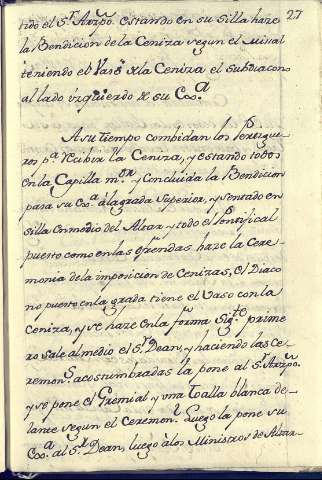 27
tido el S.r Arzpo. estando en su silla haze
la Bendicion de la Ceniza segun el Missal
teniendo el Vaso de la Ceniza el subdiacono
al lado izquierdo de su Ex.a
A su tiempo combidan los Pertigue-
ros p.a recibir la Ceniza, y estando todos
en la Capilla m.or y Concluida la Bendicion
passa su Ex.a a la grada Superior, y sentado en
silla en medio del Altar y todo el Pontifical
puesto como en las ofrendas haze la Cere-
monia de la imposicion de Cenizas, el Diaco-
no puesto en la grada tiene el Vaso con la
Ceniza, y se haze en la forma sig.te prime-
ro sale al medio el S.r Dean, y haciendo las ce-
remon.s acostumbradas la pone al S.r Arzpo.
y se pone el Gremial y una toalla blanca de-
lante segun el Ceremon.l Luego la pone su
Ex.a al S.r Dean, luego a los Ministros de Altar